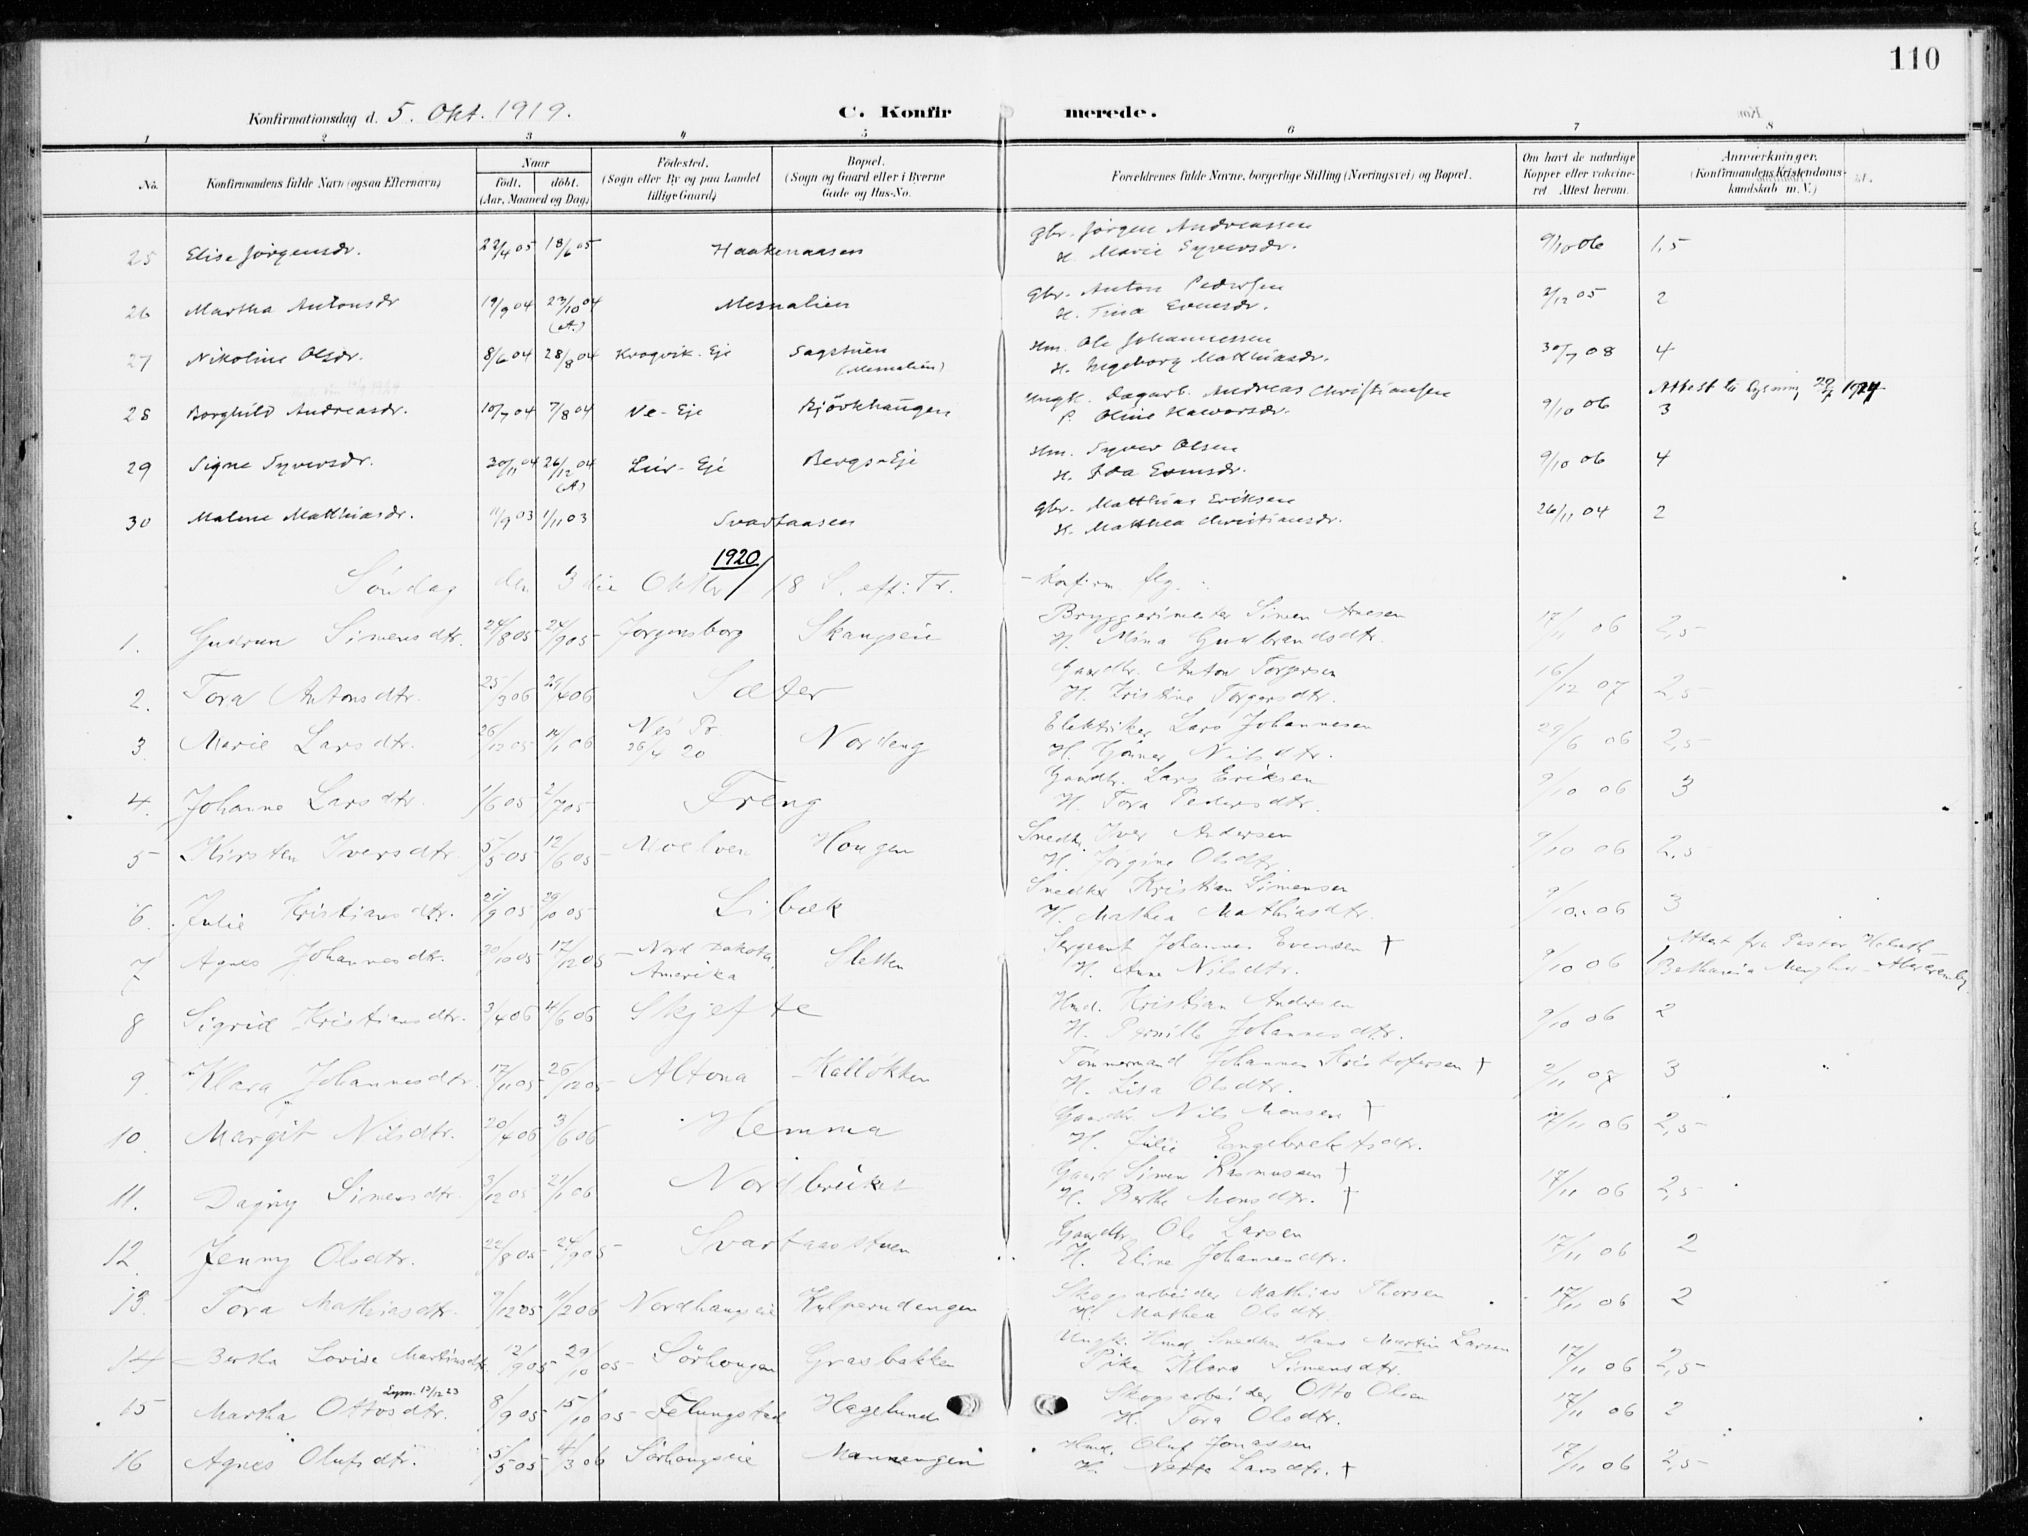 110
Konfirmationsdag d. 5. Okt. 1919. C. Konfirmerede.
1 2 3 4 5 6 7 8
No. Konfirmandens fulde Navn (ogsaa Efternavn) Naar født, døbt. (Aar, Maaned og Dag) Fødested. (Sogn eller By og paa Landet tillige Gaard) Bopæl. (Sogn og Gaard eller i Byerne Gade og Hus-No. Forældrenes fulde Navne, borgerlige Stilling (Næringsvei) og Bopæl. Om havt de naturlige Kopper eller vakcineret. Attest herom. Anmærkninger. (Konfirmandens Kristendomskundskab m. V.)
25 Elise Jørgensdr. 22/4 05 18/6 05 Haakenaasen Gbr. Jørgen Andreassen 9/10 06 1,5
H. Marie Syversdr.
26 Martha Antonsdr 19/9 04 23/10 04 (A.) Mesnalien Gbr. Anton Pedersen 2/12 05 2
H. Tina Evensdr.
27 Nikoline Olsdr. 8/6 04 28/8 04 Krogvik. Eje Sagstuen (Mesnalien) Hm. Ole Johannessen 30/7 08 4
H. Ingeborg Matthiasdr.
28 Borghild Andreasdr. 10/7 04 7/8 04 Ve-Eje Bjørkhaugen Ungk. Dagarb. Andreas Christiansen 9/10 06 Attest til lysning 3
P. Oline Havorsdr.
29 Signe Syversdr. 30/11 04 26/12 04 (A.) Lier-Eje Bergs-Eje Hm. Syver Olsen 9/10 06 4
H. Ida Evensdr.
30 Malene Matthiasdr. 11/9 03 1/11 03 Svartaasen Gbr. Matthias Eriksen 26/11 04 2
H. Matthea Christiansdr.
1920
Søndag den 3die Oktbr 18 S. eft: Tr. - Konfirm. flg.
1. Gudrun Simensdtr. 24/8 05 24/9 05 Jørgensborg Skaugseie Bryggerimester Simen Arnesen 17/11 06 2,5
H. Mina Gudbrandsdtr.
2. Tora Antonsdtr. 25/3 06 29/4 06 Sæter Gaardbr. Anton Torgersen 16/12 07 2,5
H. Kristine Torgersdtr.
3. Marie Larsdtr. 26/12 05 14/1 06 Nes Pr. 26/4 20 Nordeng Elektriker Lars Johannesen 29/6 06 2,5
H. Nilsdtr.
4. Johanne Larsdtr. 1/6 05 2/7 05 Freng Gaardbr. Lars Eriksen 9/10 06 3
H. Tora Pedersdtr.
5 Kirsten Iversdtr. 5/5 05 12/6 05 Moelven Haugen Snedkr. Iver Andersen 9/10 06 2,5
H. Jørgine Olsdtr.
6. Julie Kristiansdtr. 21/9 05 29/10 05 Lisbæk Snedker Kristian Simensen 9/10 06 3
H. Mathea Mathiasdtr.
7 Agnes Johannesdtr. 30/10 05 17/12 05 Nord Dakota, Amerika Sletten Sergeant Johannes Evensen † 9/10 06 Attest fra Pastor
H. Anne Nilsdtr. Bethania
8 Sigrid Kristiansdtr. 3/4 06 4/6 06 Skjefte Hmd. Kristian Andersen 9/10 06 2
H. Pernille Johannesdtr.
9. Klara Johannesdtr. 17/11 05 26/12 05 Altona Kalløkken Tømmermand Johannes Kristofersen † 2/11 08 3
H. Lisa Olsdtr.
10. Margit Nilsdtr. 20/4 06 3/6 06 Hemma Gaardbr Nils Monsen † 17/11 06 2,5
H. Julie Engebretsdtr.
11. Dagny Simensdtr. 3/12 05 21/1 06 Nordbruket Gaard Simen Rasmussen † 17/11 06 2,5
H. Berthe Monsdtr. †
12. Jenny Olsdtr. 22/8 05 24/9 05 Svartaasstuen Gaardbr Ole Larsen 17/11 06 2
H. Eline Johannesdtr.
13. Tora Mathiasdtr. 9/12 05 11/2 06 Nordhaugseie Kylperudengen Skogsarbeider Mathias Thorsen 17/11 06 2
H. Mathea Olsdtr.
14 Bertha Lovise Martinsdtr. 12/9 05 29/10 05 Sørhougen Grasbakken Ungk. Hmd. Snedker Hans Martin Larsen 17/11 06 2,5
Pike Klara Simensdtr.
15 Martha Ottosdtr. Lysn. 13/12 23 8/9 05 15/10 05 Felungstad Hagelund Skogsarbeider Otto Olsen 17/11 06 2
H. Tora Olsdtr.
16 Agnes Olufsdtr. 5/5 05 4/3 06 Sørhougseie Mannengen Hmd. Oluf Jonassen 17/11 06 2,5
H. Nette Larsdtr. †